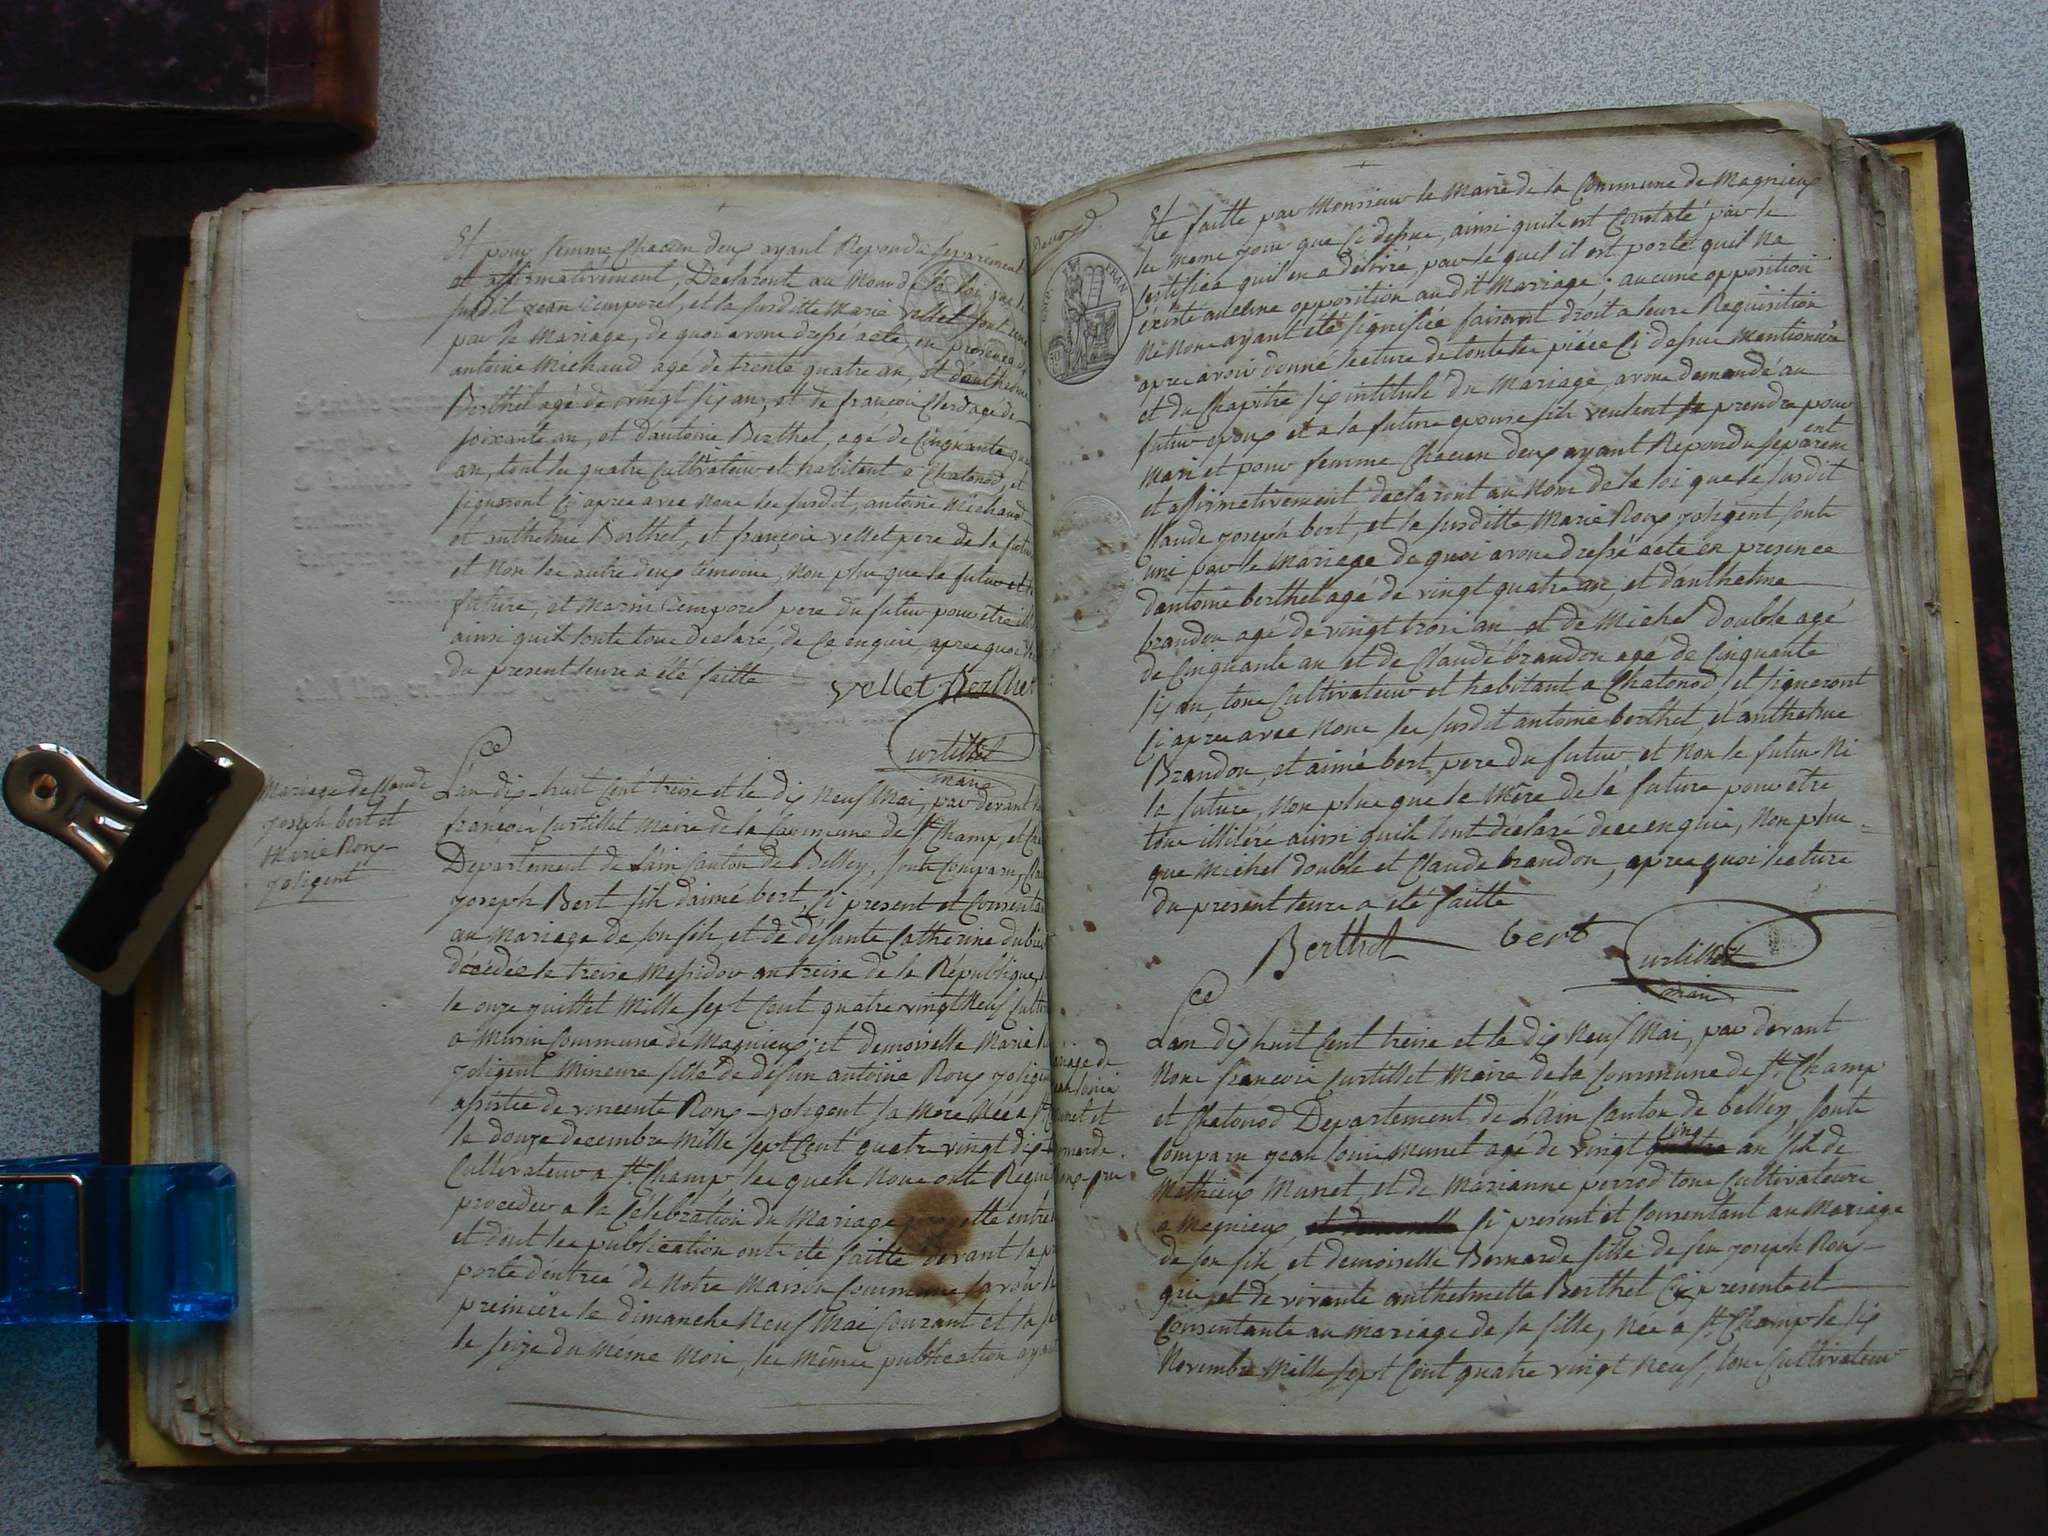 Et pour femme, Chacun deux ayant Repondu separément
et affirmativement, Declaronts au Nom de la loi que le
susdit jean Cemporel, et la susditte Marie vellet sont unie
par le Mariage, de quoi avons dressé acte, en presence de
antoine Michaud agé de trente quatre an, et danthelme
Berthet agé de vingt six an, et de françois Clerd agé de
soixante an, et dantoine Berthet, agé de Cinquante
an, tout les quatre Cultivateur et habitant a Chatonod, et
signeront Ci apres avec Nous les susdit, antoine Michaud
et anthelme Berthet, et françois vellet pere de la future
et Non les autre deux temoins, Non plus que le futur et la
future, et Marin Cemporel pere du futur pour être
ainsi quil sonte tous declaré, de Ce enquie, apres quoi
du present leure a été faitte
vellet Berthet
Curtillet
maire
Mariage de Claude
joseph bert et
Marie Roux
joligent
Ce
L'an dix-huit Cent treise et le dix Neuf Mai, par devant
françois Curtillet Maire de la Commune de St Champ, et
Departement de Lain Canton de Belley, sonte Comparu,
joseph Bert fils daimé bert, Ci present et Consentant
au Mariage de son fils, et de défunte Catherine
décédée le treise Messidor an treise de la République,
le onze juillet Mille sept Cent quatre vingt Neuf
a Musin Commune de Magnieux, et demoiselle Marie
joligent Mineure fille de defun antoine Roux joligent
assistée de vincente Roux-joligent sa Mere Née a St
le douze decembre Mille sept Cent quatre vingt dix
Cultivateur a St Champ les quels Nous onte Requi
proceder a la Célébration du Mariage projetté entre
et dont les publication onte été faitte devant la
porte dentreé de Notre Maison Commune savoir la
premiére le dimanche Neuf Mai Courant et la
le seize du Même Moi, les Mêmes publication
deux
TIMB. FRAN
50
Eté faitte par Monsieur le Marie de la Commune de Magnieux
les Meme jour que Ci dessus, ainsi quil est Constaté par le
Certifica quil en a delivré, par le quel il est porté quil Na
éxisté aucune opposition audit Mariage; aucune opposition
Ne Nous ayant été signifiée faisant droit a leurs Requisition
apres avoir donné lecture de toute les piéce Ci dessus Mantionnée
et du Chapitre six intitulé du Mariage avons demandé au
futur epoux et a la future epouse sils veulent se prendre pour
Mari et pour femme Chacun deux ayant Repondu séparement
et affirmativement déclaront au Nom de la loi que le susdit
Claude joseph bert, et la susditte Marie Roux joligent sonte
uni par le Mariage de quoi avons dressé acte en presence
dantoine berthet agé de vingt quatre an et danthelme
brandon agé de vingt trois an et de Michel double agé
de Cinquante an et de Claude brandon agé de Cinquante
six an, tous Cultivateur et habitant a Chatonod, et signeront
Ci apres avec Nous les susdit antoine berthet, et anthelme
Brandon, et aimé bert pere du futur, et Non le futur Ni
la future, Non plus que la Mère de la future pour etre
tous illitéré ainsi quils lont déclaré de ce enquis, Non plus
que Michel double et Claude brandon, apres quoi lecture
du present leure a été faitte
Berthet bert Curtillet
maire
Ce
L'an dix huit Cent treise et le dix Neuf Mai, par devant
Nous françois Curtillet Maire de la Commune de St Champ
et Chatonod Departement de L'ain Canton de belley, sonte
Comparu jean louis Munet agé de vingt Cinq an fils de
Mathieux Munet, et de Marianne perrod tous Cultivateurs
a Magnieux, Ci present et Consentant au Mariage
de son fils et demoiselle Bernarde fille de feu joseph Roux
grix, et de vivante anthelmette Berthet Ci presente et
Consentante au mariage de sa fille, Née a St Champ le six
Novembre Mille sept Cent quatre vingt Neuf, tous Cultivateur